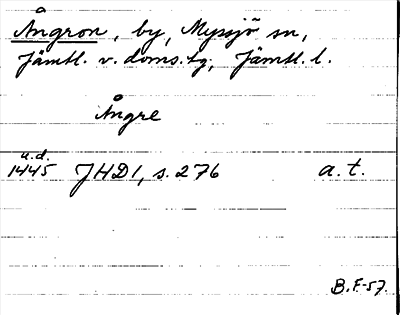 Ångron, by, Myssjö sn,
Jämtl. v. doms.tg, Jämtl. l.
Ångre
u.d.
1445 JHD1, s. 276 a.t.
B.F-57.